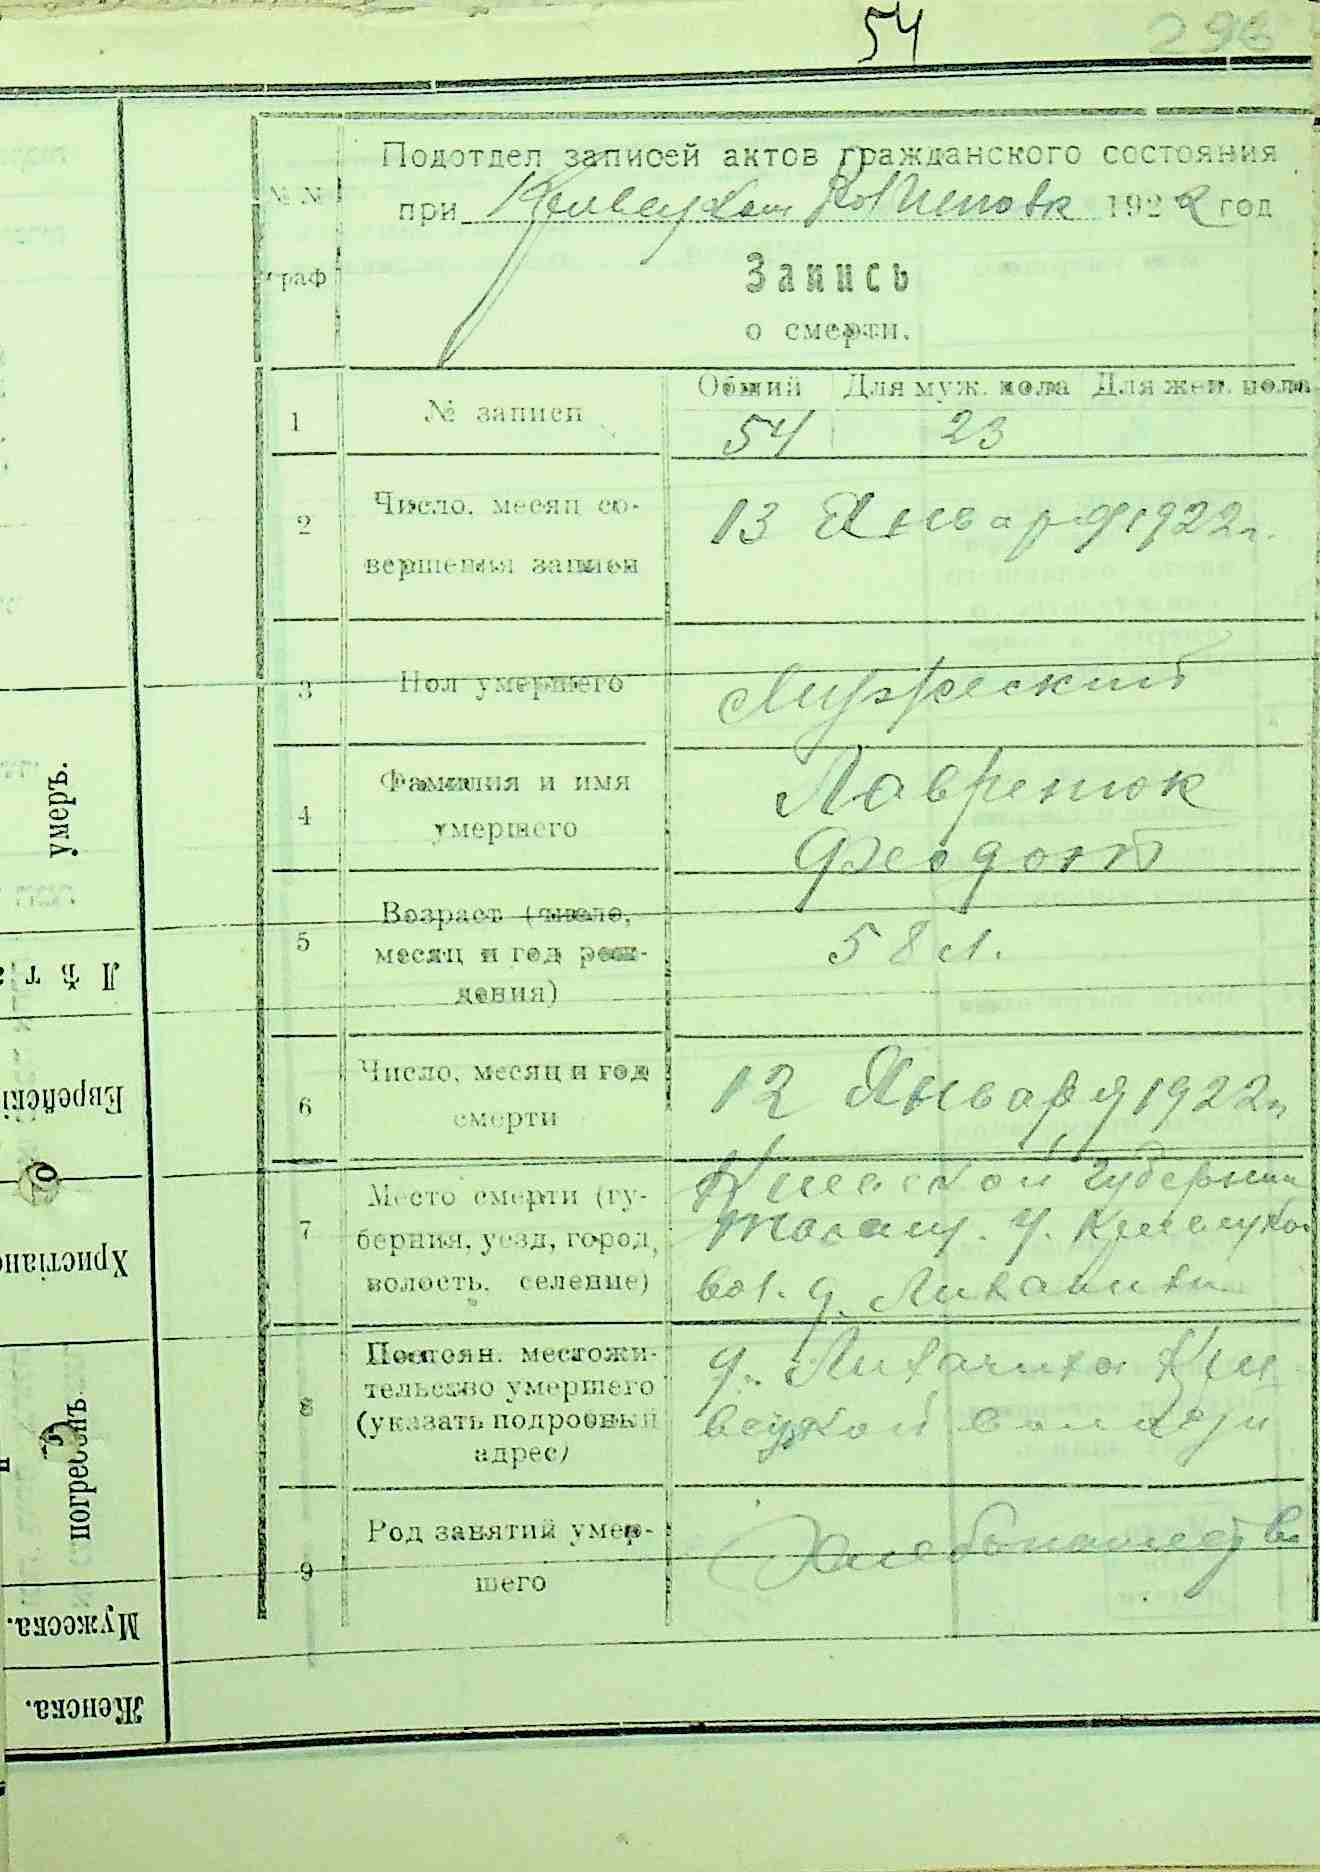 54
296
Подотдел записей актов гражданского состояния
при 1922 год
№ №
граф
Запись
о смерти.
Общий Для муж. пола Для жен. пола
1 № записи 54 23
2 Число, месяц со-
вершения записи
13 Января 1922 г.
3 Пол умершего Мужеский
4 Фамилия и имя
умершего
Лавренюк
Феодот
5 Возраст (число,
месяц и год рож-
дения)
58 л.
6 Число, месяц и год
смерти
12 Января 1922 г.
7 Место смерти (гу-
берния, уезд, город,
волость, селение)
Киевской губернии
У.
вол. д.
8 Постоян. местожи-
тельство умершего
(указать подробный
адрес)
д.
9 Род занятий умер-
шего
Хлебопашество
умеръ.
Лѣта
Еврейскі
Христіанс
погребенъ
Мужеска.
Женска.